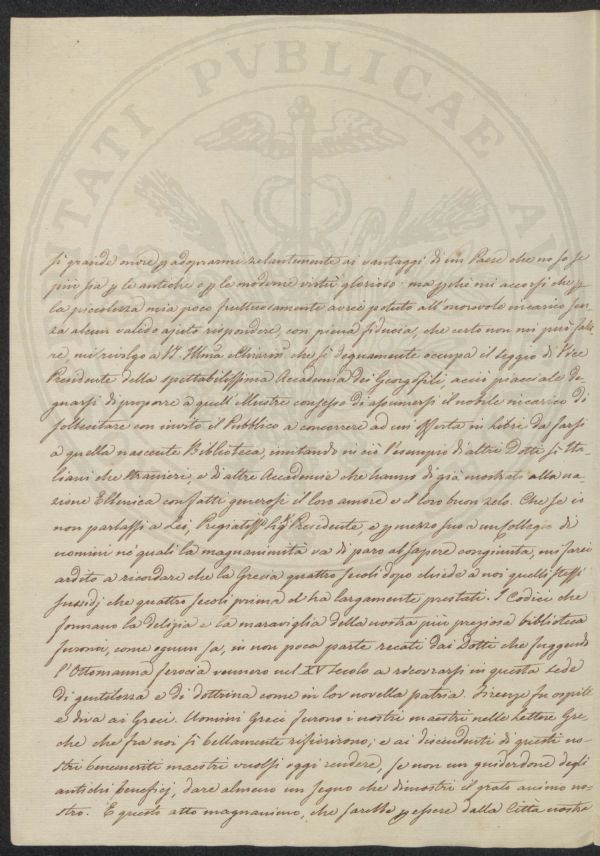 TATI PVBLICAE
si grande onore p adoprarmi zelantemente ai vantaggi di un Paese che non so se
più sia p le antiche o p le moderne virtù glorioso: ma pchè mi accorsi che
la piccolezza mia poco fruttuosamente avrei potuto all'onorevole incarico sen-
za alcun valido ajuto rispondere, con piena fiducia, che certo non mi può falli-
re, mi rivolgo a V. S. Illma e Chiarisma che sì degnamente occupa il seggio di Vice
Presidente della spettabilissima Accademia dei Georgofili, acciò piacciale de-
gnarsi di proporre a quell'illustre consesso di assumersi il nobile incarico di
sollecitare con invito il Pubblico a concorrere ad un'offerta in libri da farsi
a quella nascente Biblioteca, imitando in ciò l'esempio di altri Dotti sì Ita-
liani che stranieri, e di altre Accademie che hanno di già mostrato alla na-
zione Ellenica con fatti generosi il loro amore e il loro buon zelo. Che se io
non parlassi a Lei, Pregiatiss. Sigr Presidente, e p mezzo suo a un Collegio di
uomini ne' quali la magnanimità va di paro al sapere congiunta, mi farei
ardito a ricordare che la Grecia quattro secoli dopo chiede a noi quelli stessi
sussidj che quattro secoli prima ci ha largamente prestati. I Codici che
formano la delizia e la maraviglia della nostra più preziosa biblioteca
furono, come ognun sa, in non poca parte recati dai Dotti che fuggendo
l'Ottomanna ferocia vennero nel XV secolo a ricovrarsi in questa sede
di gentilezza e di dottrina come in lor novella patria. Firenze fu ospite
e diva ai Greci. Uomini Greci furono i nostri maestri nelle Lettere Gre-
che che fra noi sì bellamente rifiorirono; e ai discendenti di questi no-
stri benemeriti maestri vuolsi oggi rendere, se non un guiderdone degli
antichi beneficj, dare almeno un segno che dimostri il grato animo no-
stro. E questo atto magnanimo, che sarebbe p essere dalla Città nostra